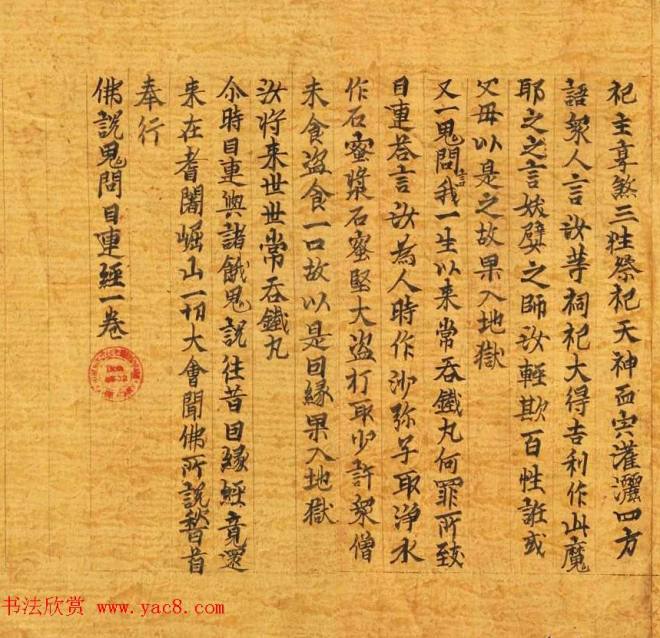 祀主辜煞三牲祭祀天神血宍灌灑四方
語衆人言汝等祠祀大得吉利作此魔
耶之之言妖孽之師汝輕欺百性誑或
父母以是之故果入地獄
又一鬼問言我一生以来常吞鐵丸何罪所致
目連荅言汝為人時作沙弥子取浄水
作石蜜漿石蜜堅大盗打取少許衆僧
未食盗食一口故以是因緣果入地獄
汝将来世世常吞鐵丸
尒時目連與諸餓鬼說往昔因緣經竟還
来在耆闍崛山一切大會聞佛所說稽首
奉行
佛說鬼問目連經一卷
书法欣赏 www.yac8.com